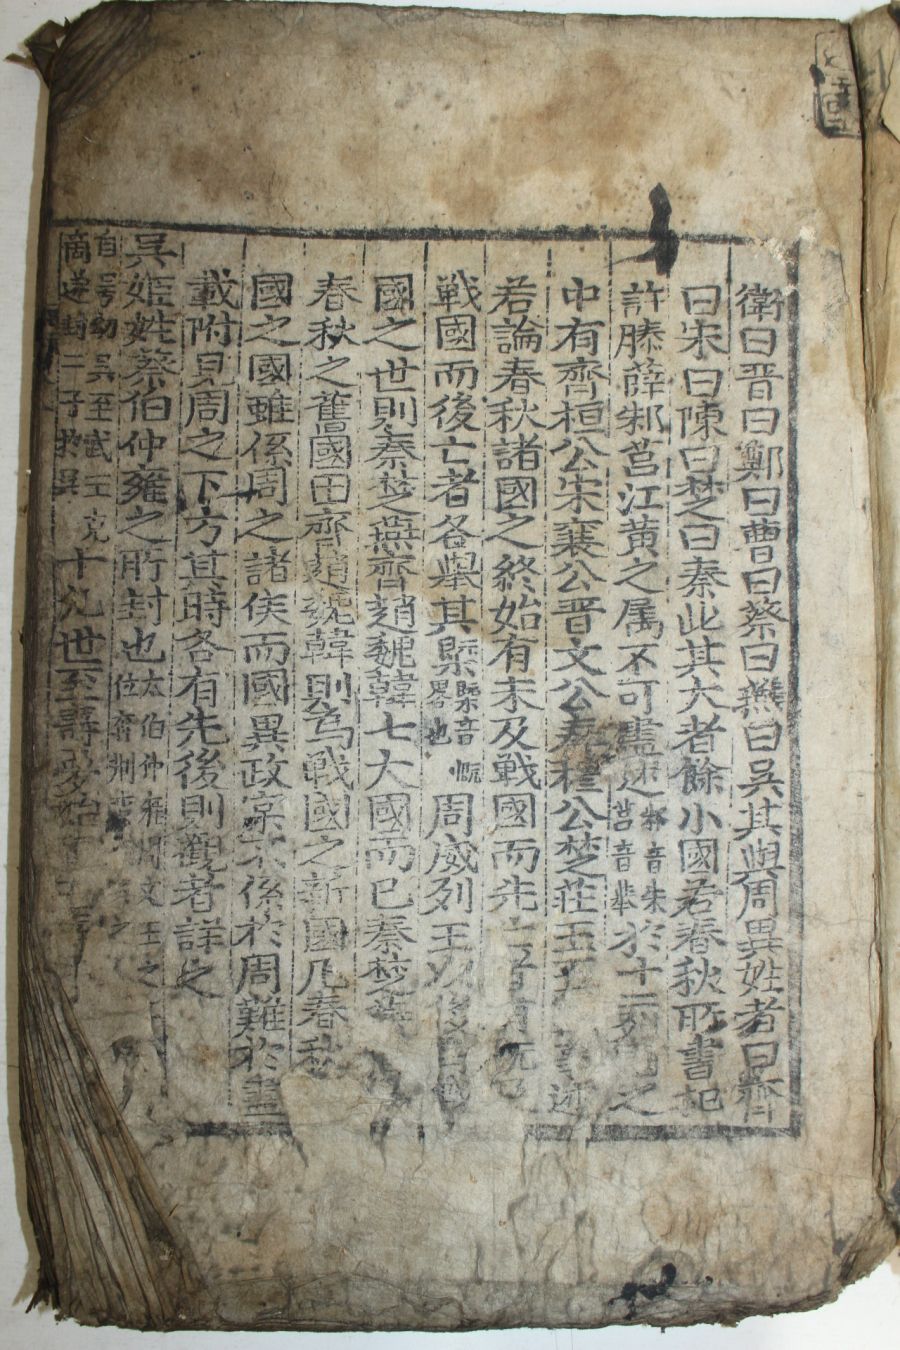 衛曰晋曰鄭曰曹曰蔡曰燕曰吳其與周異姓者曰齊
曰宋曰陳曰楚曰秦此其大者餘小國若春秋所書杞
許滕薛邾莒江黃之属不可盡述邾音朱莒音擧於十二列國之
中有齊桓公宋襄公晋文公秦穆公楚莊王五
若論春秋諸國之終始有未及戰國而先
戰國而後亡者各擧其槩槩音慨畧也周威列王
國之世則秦楚燕齊趙魏韓七大國而已秦楚燕
春秋之舊國田齊趙魏韓則為戰國之新國凡春秋
國之國雖係周之諸侯而國異政家不係於周難於盡
載附見周之下方其時各有先後則觀者詳之
吳姬姓泰伯仲雍之所封也太伯仲雍周文王之
自号勾吳至武王克商遂封二子於吳十九世至壽夢始